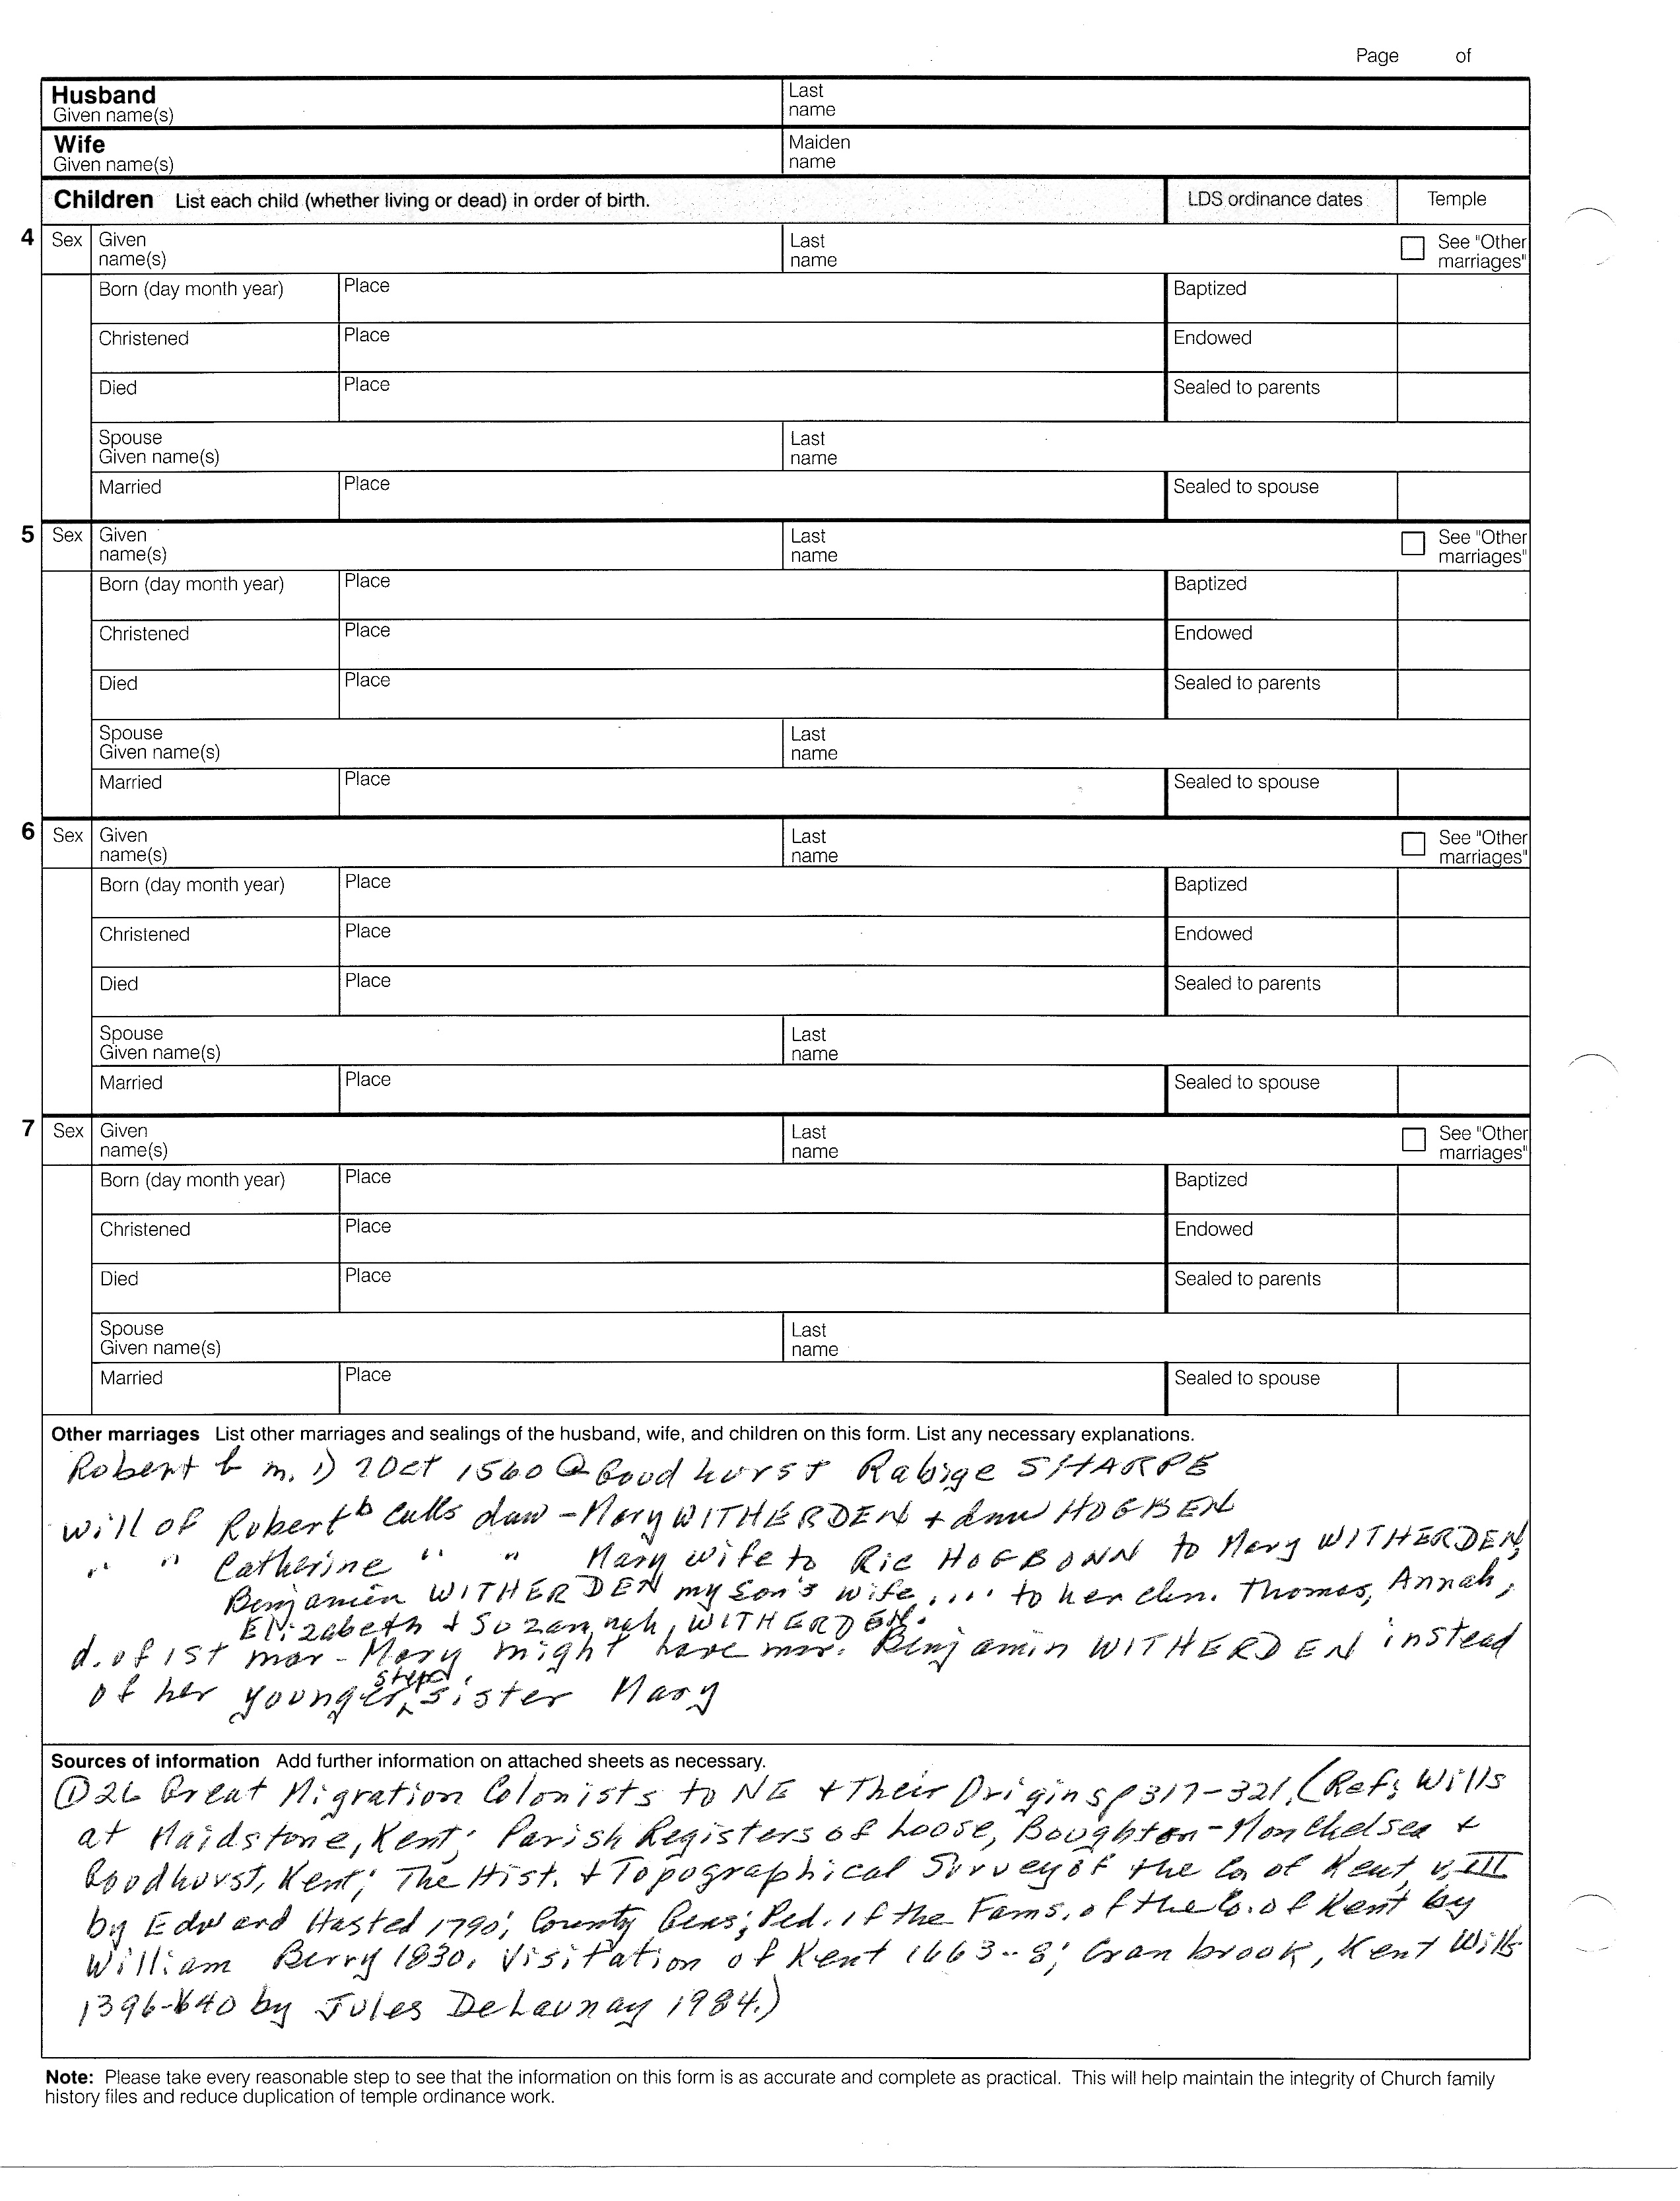 Page of
Husband
Given name(s)
Last
name
Wife
Given name(s)
Maiden
name
Children List each child (whether living or dead) in order of birth.
LDS ordinance dates
Temple
4 Sex Given
name(s)
Last
name
See "Other
marriages"
Born (day month year) Place Baptized
Christened Place Endowed
Died Place Sealed to parents
Spouse
Given name(s)
Last
name
Married Place Sealed to spouse
5 Sex Given
name(s)
Last
name
See "Other
marriages"
Born (day month year) Place Baptized
Christened Place Endowed
Died Place Sealed to parents
Spouse
Given name(s)
Last
name
Married Place Sealed to spouse
6 Sex Given
name(s)
Last
name
See "Other
marriages"
Born (day month year) Place Baptized
Christened Place Endowed
Died Place Sealed to parents
Spouse
Given name(s)
Last
name
Married Place Sealed to spouse
7 Sex Given
name(s)
Last
name
See "Other
marriages"
Born (day month year) Place Baptized
Christened Place Endowed
Died Place Sealed to parents
Spouse
Given name(s)
Last
name
Married Place Sealed to spouse
Other marriages List other marriages and sealings of the husband, wife, and children on this form. List any necessary explanations.
Robert b m. 1) 2 Oct 1560 @ Goodhurst Rabige SHARPE
will of Robert b calls dau - Mary WITHERDEN + HOGBEN
" " Catherine " " Mary wife to Ric HOGBONN to Mary WITHERDEN,
Benjamin WITHERDEN my son's wife, ... to her chn. Thomas, Annah,
Elizabeth + Suzannah, WITHERDEN.
d. of 1st mar - Mary might have mar. Benjamin WITHERDEN instead
of her younger step sister Mary
Sources of information Add further information on attached sheets as necessary.
① 26 Great Migration Colonists to NE + Their Origins p 317-321. (Ref: Wills
at Maidstone, Kent; Parish Registers of Loose, Boughton-Monchelsea +
Goodhurst, Kent; The Hist. + Topographical Survey of the Co of Kent, v. III
by Edward Hasted 1790; County Gens; Ped. of the Fams. of the Co. of Kent by
William Berry 1830. Visitation of Kent 1663-8; Cranbrook, Kent Wills
1396-1640 by Jules DeLaunay 1984.)
Note: Please take every reasonable step to see that the information on this form is as accurate and complete as practical. This will help maintain the integrity of Church family
history files and reduce duplication of temple ordinance work.